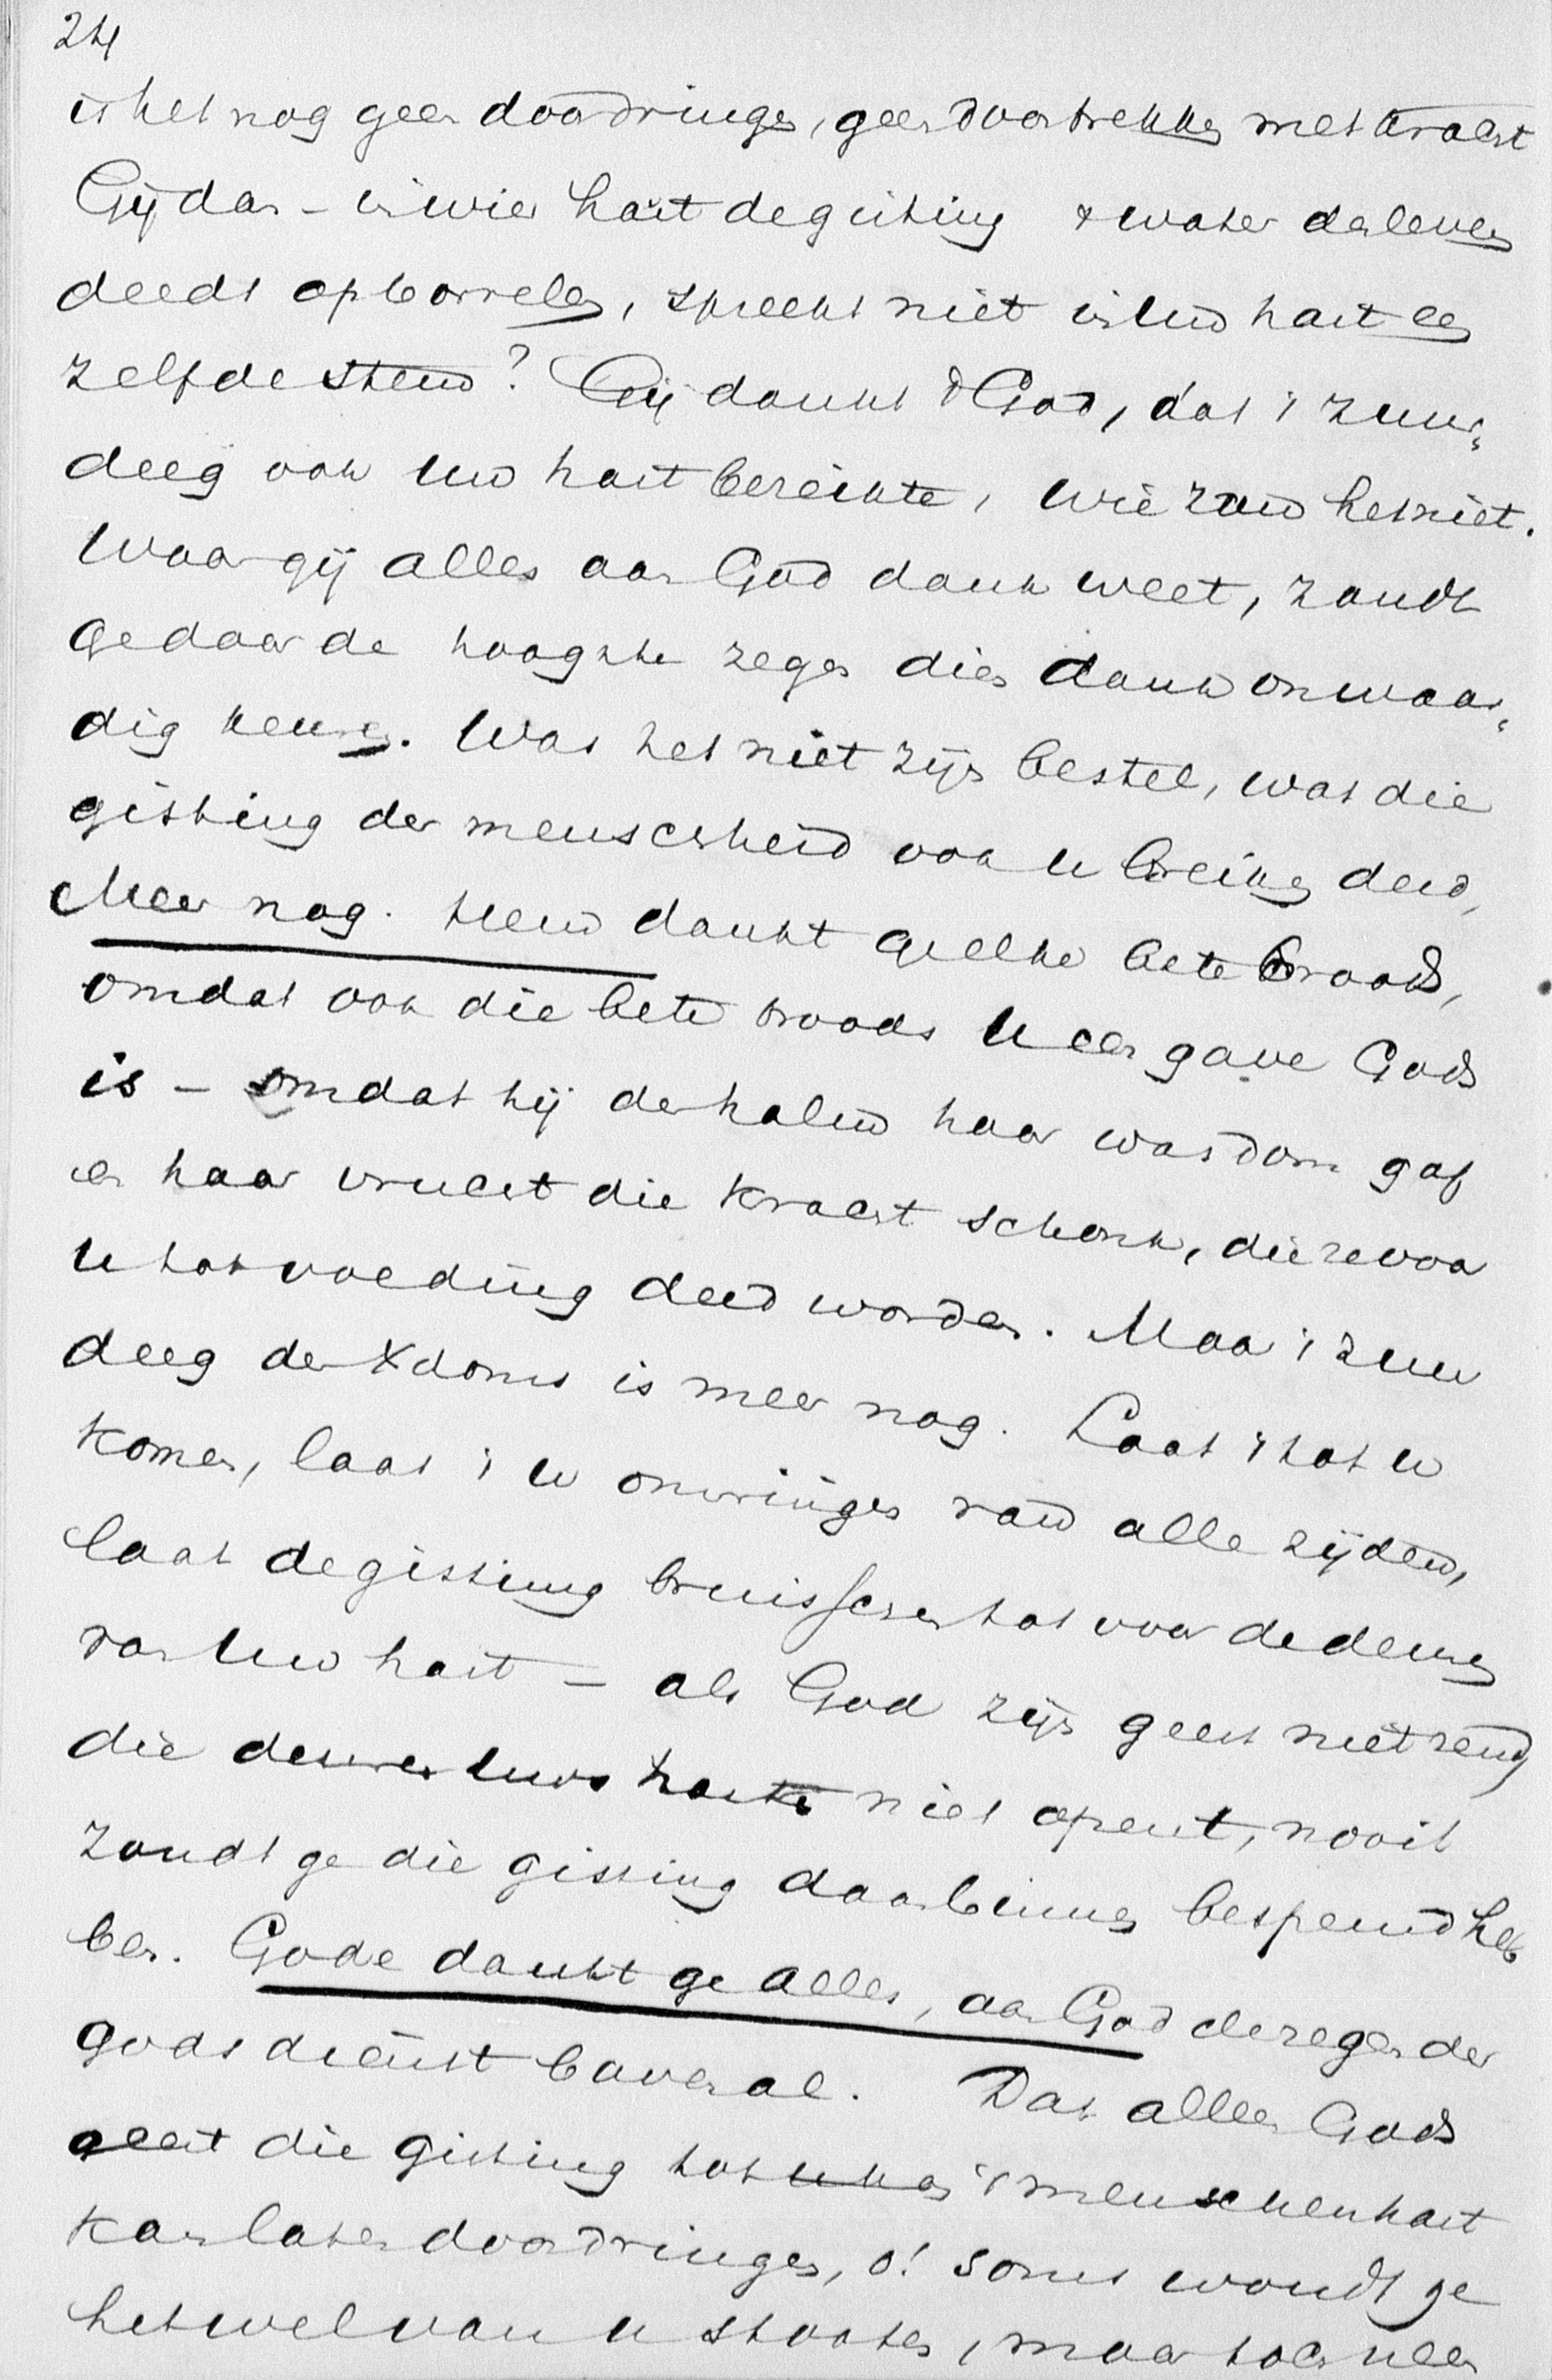 24
is het nog geen doordringen, geen doortrekken met kracht
Gij dan - in wier hart de gisting & water des levens
deedt opborrelen, spreekt niet in Uw hart een
zelfde stem? Gij dankt God, dat 't zuur„
deeg ook Uw hart bereikte, wie zou het niet.
Waar gij alles aan God dank weet, zoudt
ge daar de hoogste zegen dies dank onwaar„
dig keuren. Was het niet zijn bestel, wat die
gisting der menscheid ook u bereiken deed,
Meer nog. Hem dankt ge elke bete broods,
omdat ook die bete broods U een gave Gods
is - omdat hij den halm haar wasdom gaf
en haar vrucht die kracht schonk, die ze voor
U tot voeding deed worden. Maar 't zuur
deeg des Xdoms is meer nog. Laat 't tot u
komen, laat 't u omringen van alle zijden,
laat de gisting bruisschen tot voor de deuren
van Uw hart - als God zijn geest niet zend,
die deuren Uws harte niet opent, nooit
zoudt ge die gisting daarbinnen bespeurd heb
ben. Gode dankt ge alles, aan God de zegen der
godsdienst bovenal. Dat alleen Gods
geest die gisting tot in 't menschenhart
kan laten doordringen, o! soms woudt ge
het wel van u stooten, maar toch neen